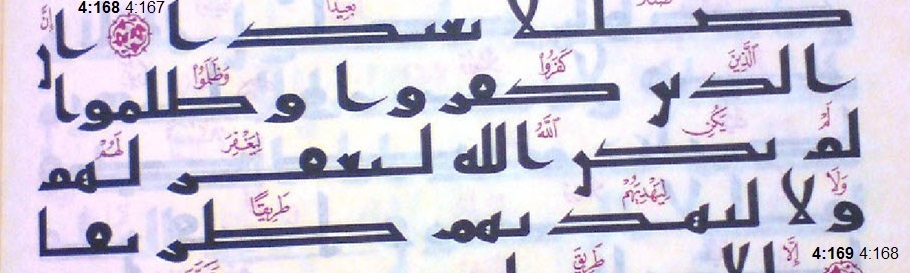 4:168 4:167
بَعِيدًا إِنَّ
ضللا بعيدا ان
الَّذِينَ كَفَرُوا وَظَلَمُوا
الذين كفروا وظلموا
لَمْ يَكُنِ اللَّهُ لِيَغْفِرَ لَهُمْ
لم يكن الله ليغفر لهم
وَلَا لِيَهْدِيَهُمْ طَرِيقًا
ولا ليهديهم طريقا
4:169 4:168
إِلَّا طَرِيقَ
الا